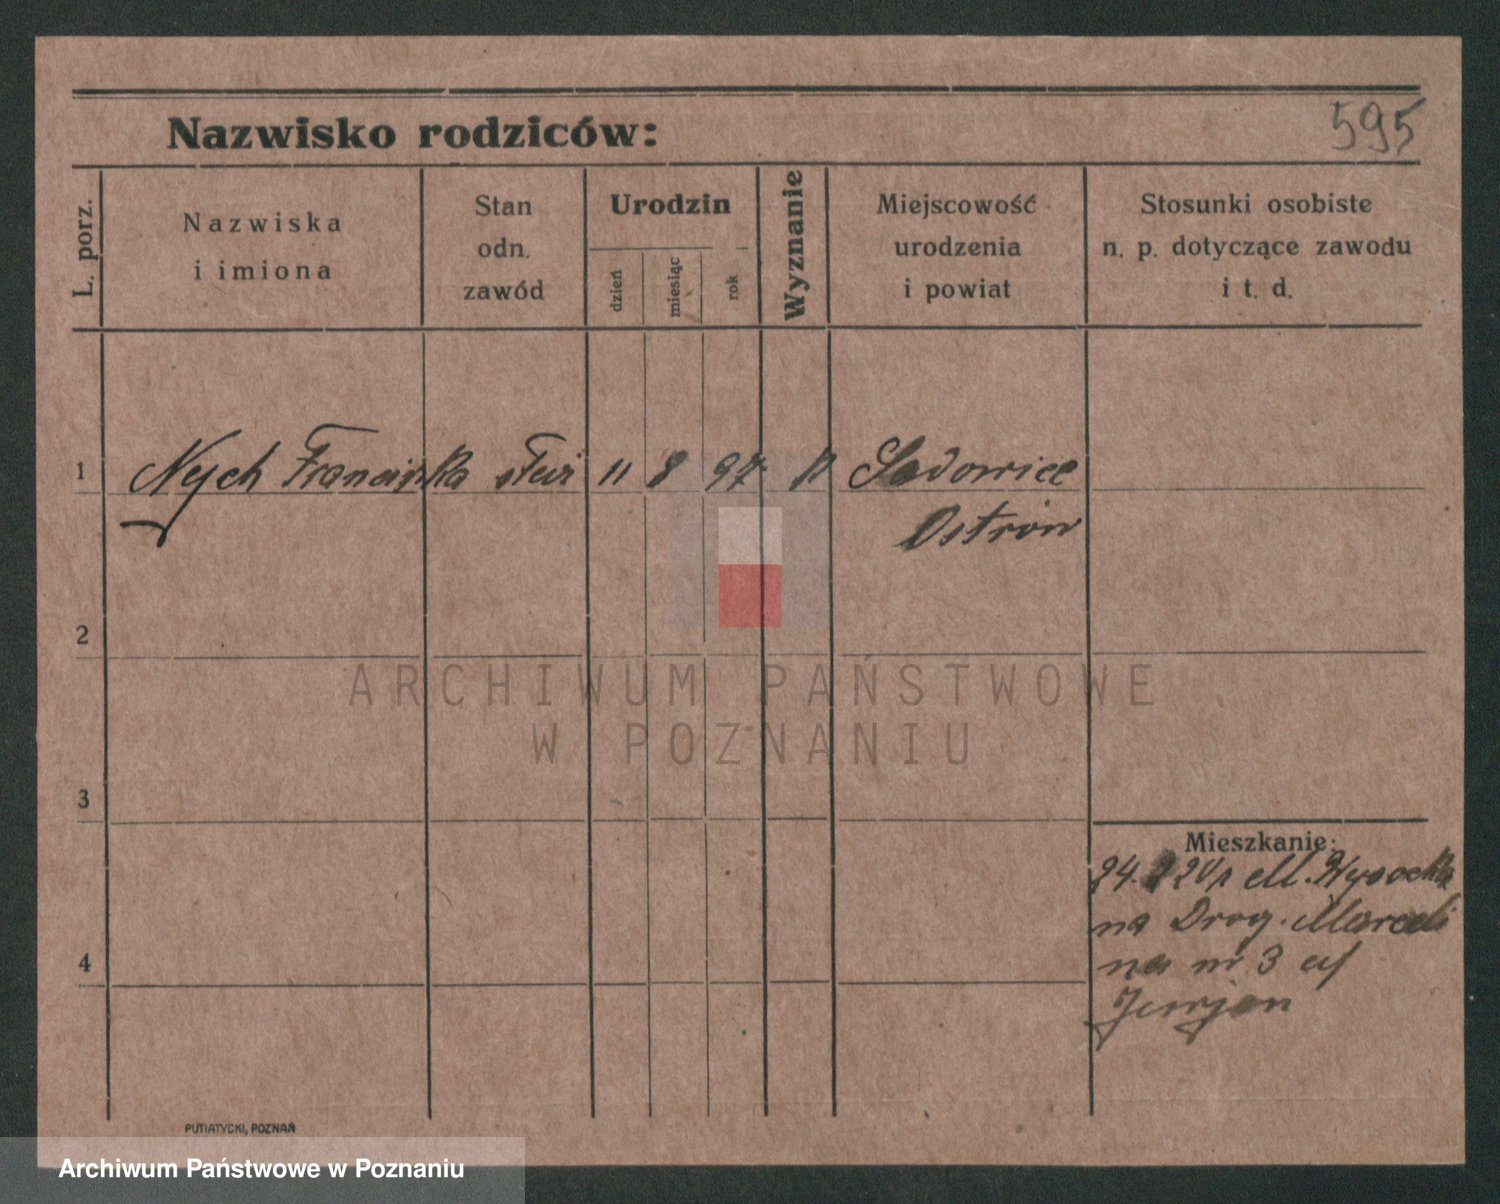 595
Nazwisko rodziców:
L. porz.
Nazwiska
i imiona
Stan
odn.
zawód
Urodzin
dzień
miesiąc
rok
Wyznanie
Miejscowość
urodzenia
i powiat
Stosunki osobiste
n. p. dotyczące zawodu
i t. d.
1 Nych Franciszka 11 8 97 Sadowice
Ostrów
2
ARCHIWUM PAŃSTWOWE
W POZNANIU
3
Mieszkanie:
M. Wysocka
na Drog. Marceli
na nr 3
4
PUTIATYCKI, POZNAŃ
Archiwum Państwowe w Poznaniu